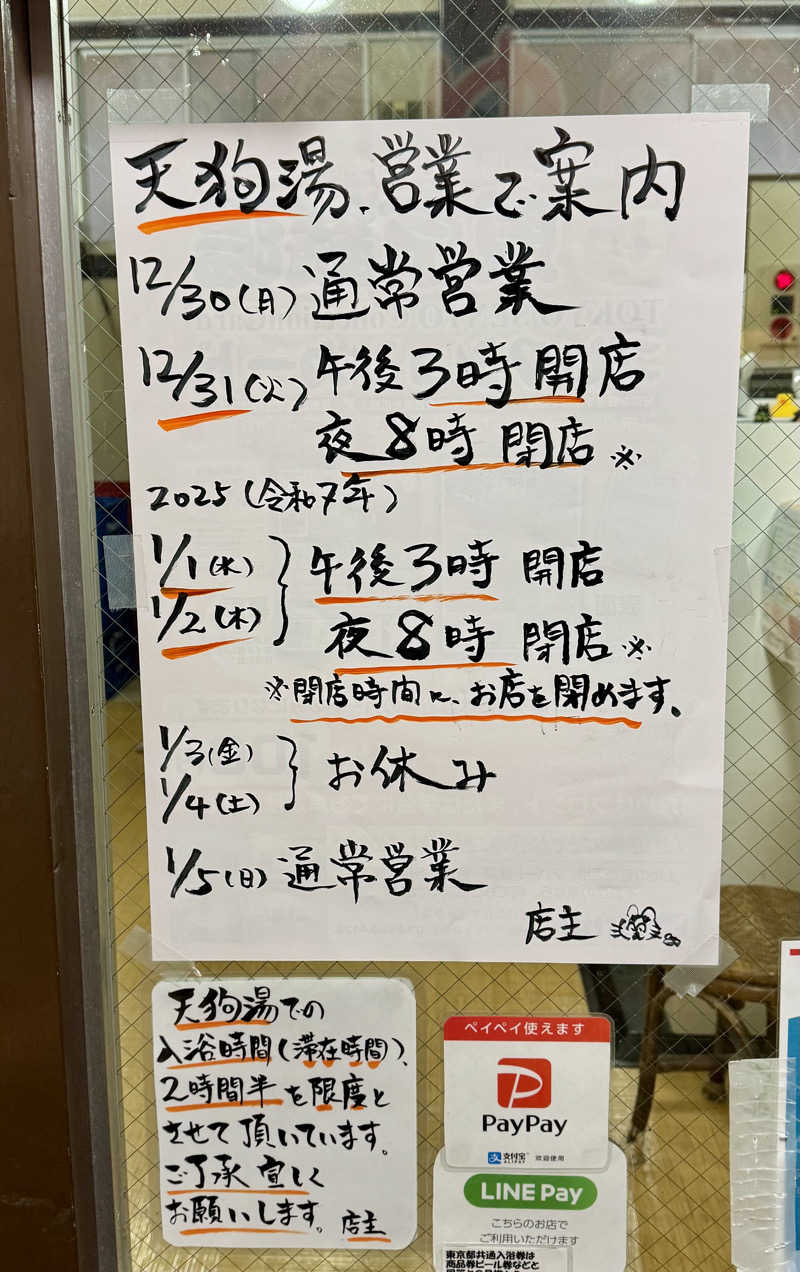 天狗湯、営業ご案内
12/30(月)通常営業
12/31(火)午後3時開店
夜8時閉店※
2025(令和7年)
1/1(水)
1/2(木)
午後3時 開店
夜8時 閉店※
※閉店時間に、お店を閉めます。
1/3(金)
1/4(土)
お休み
1/5(日)通常営業
店主
天狗湯での
入浴時間(滞在時間)、
2時間半を限度と
させて頂いています。
ご了承宜しく
お願いします。店主
ペイペイ使えます
PayPay
支付宝 ALIPAY 欢迎使用
LINE Pay
こちらのお店で
ご利用いただけます
東京都共通入浴券は
商品券ビール券などと